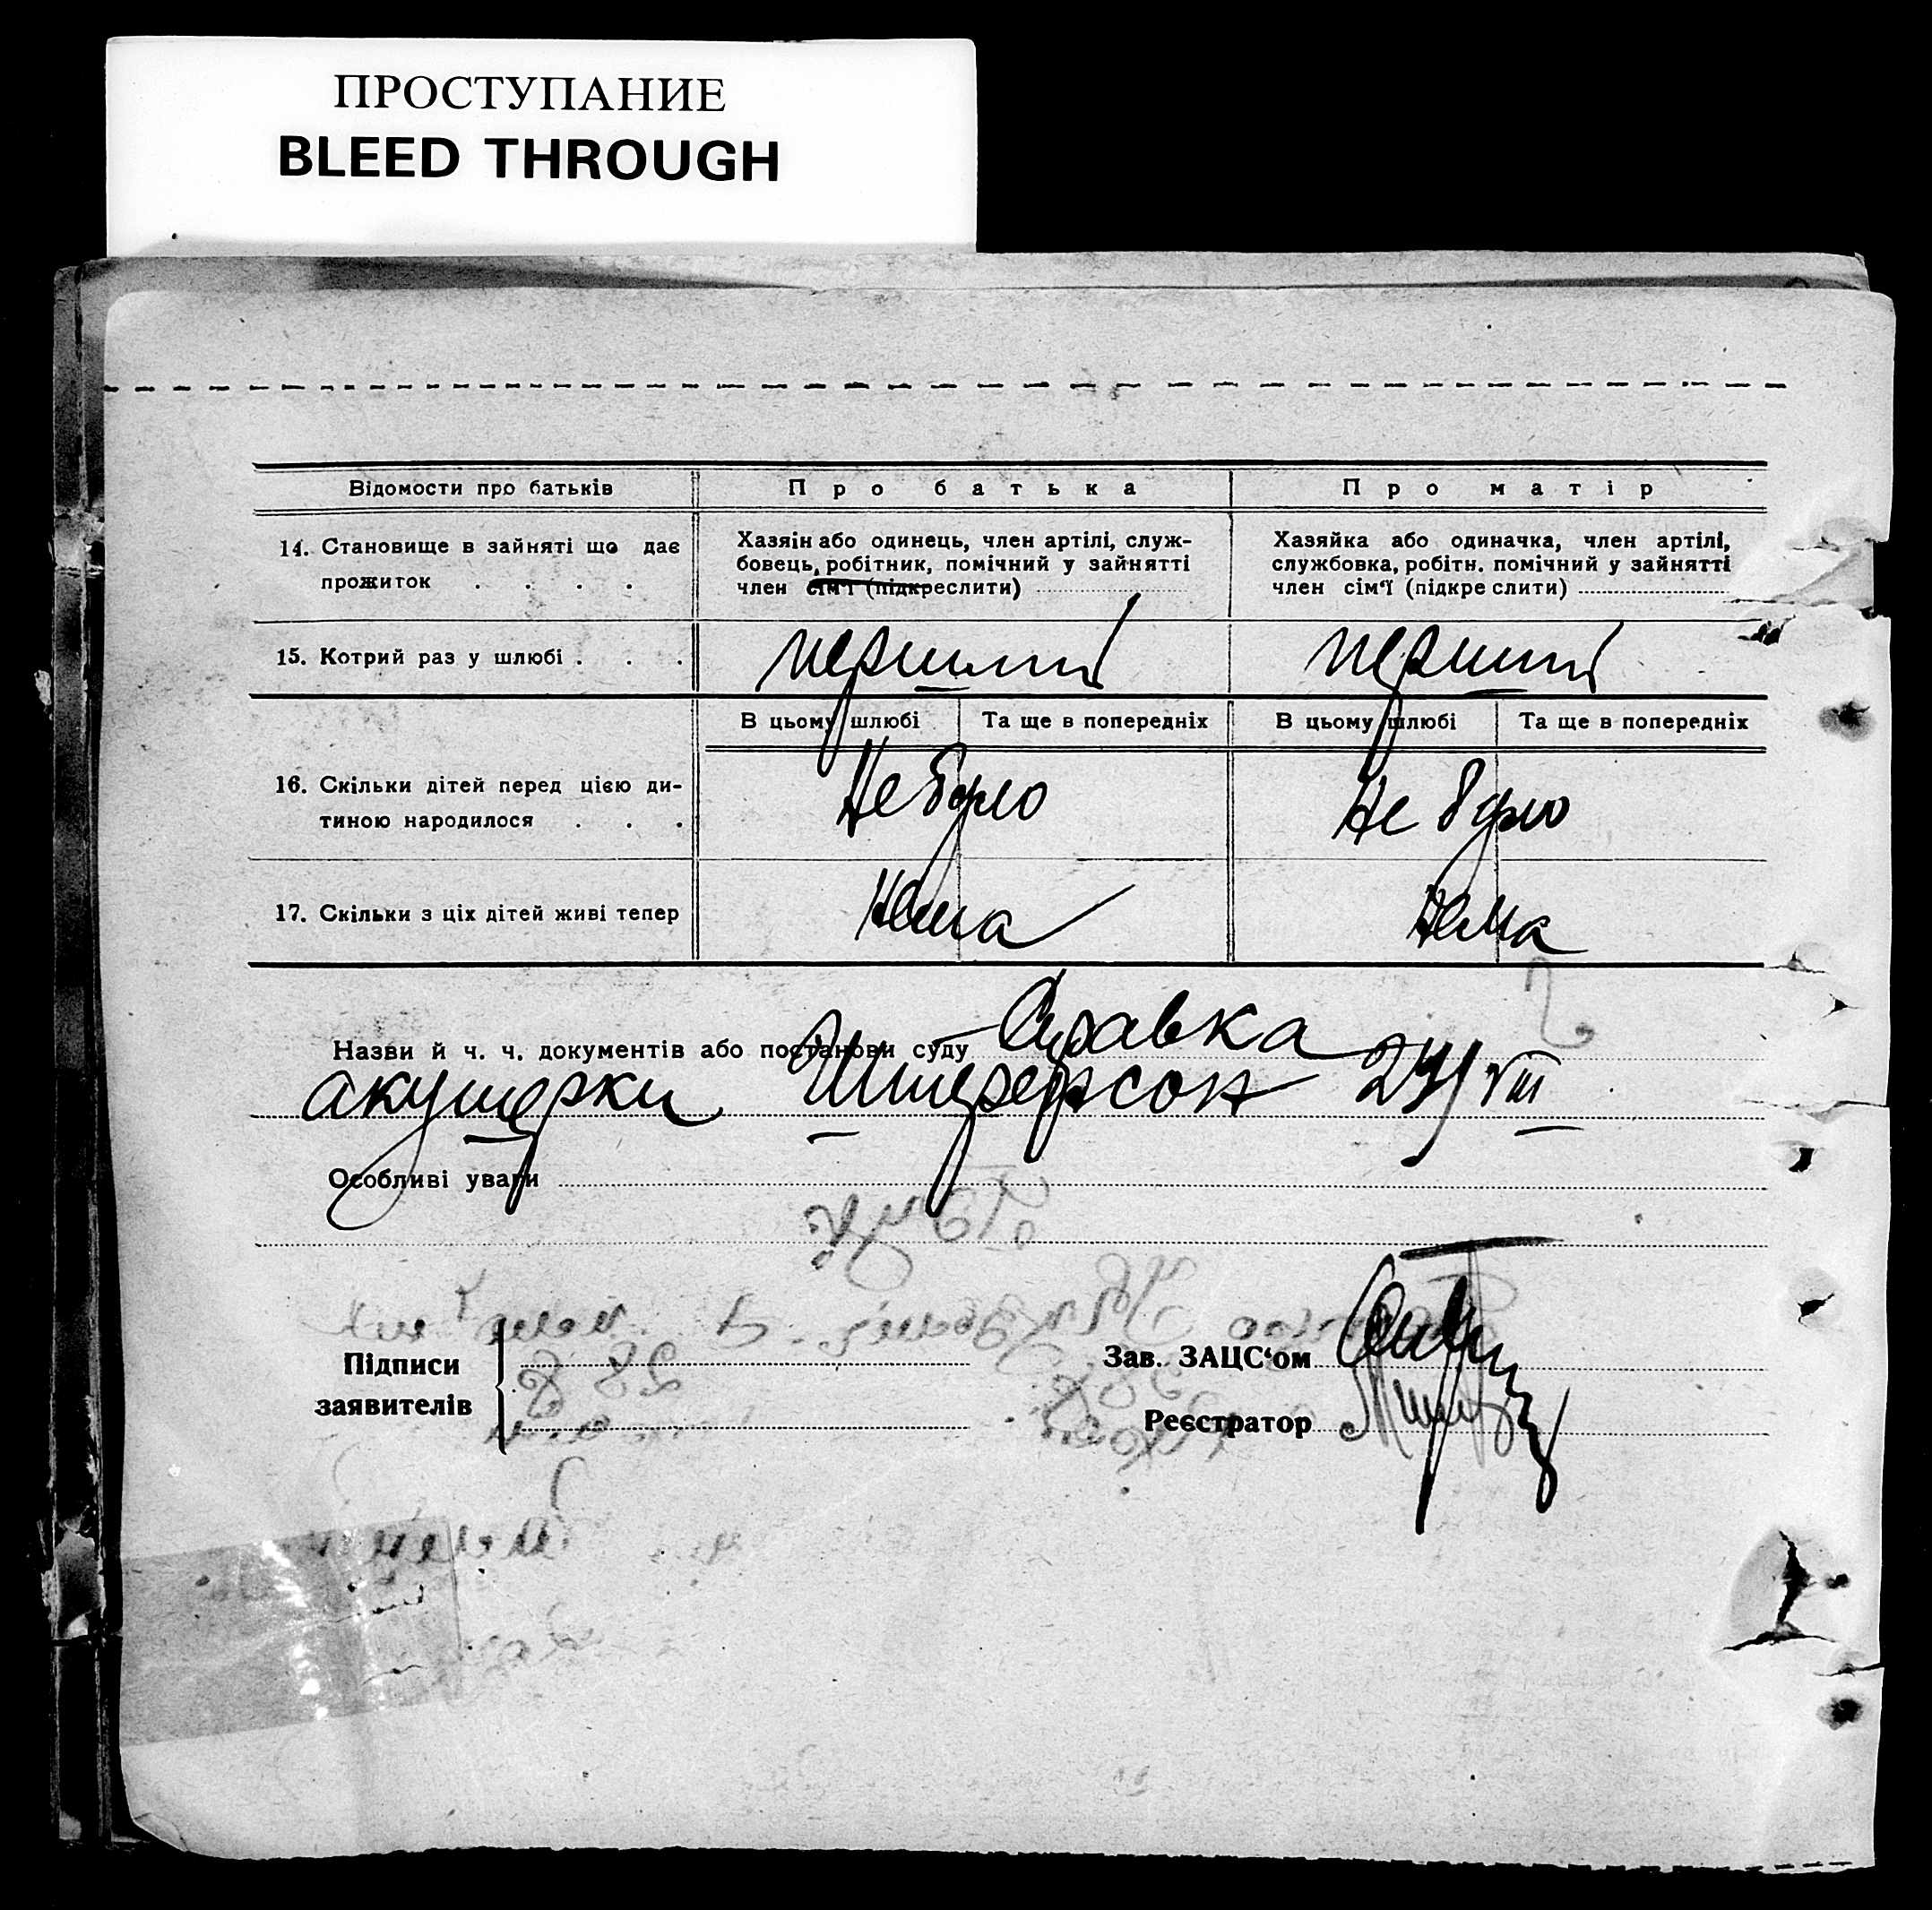 ПРОСТУПАНИЕ
BLEED THROUGH
Відомости про батьків
Про батька
Про матір
14. Становище в зайняті що дає
прожиток . . . .
Хазяін або одинець, член артілі, служ-
бовець, робітник, помічний у зайнятті
член сім'ї (підкреслити)
Хазяйка або одиначка, член артілі,
службовка, робітн. помічний у зайнятті
член сім'ї (підкре слити)
15. Котрий раз у шлюбі . . .
перший
перший
В цьому шлюбі
Та ще в попередніх
В цьому шлюбі
Та ще в попередніх
16. Скільки дітей перед цією ди-
тиною народилося . . .
Не було
Не було
17. Скільки з ціх дітей живі тепер
Нема
Нема
Назви й ч. ч. документів або постанови суду Справка
акушерки 24/VIII
Особливі уваги
Підписи
заявителів
Зав. ЗАЦС'ом
Реєстратор